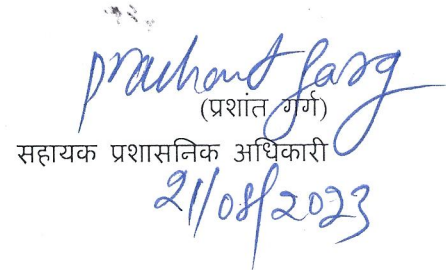 Prashant Garg
(प्रशांत गर्ग)
सहायक प्रशासनिक अधिकारी
21/08/2023